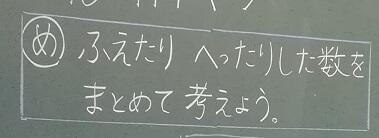 め ふえたり へったりした数を
まとめて 考えよう。